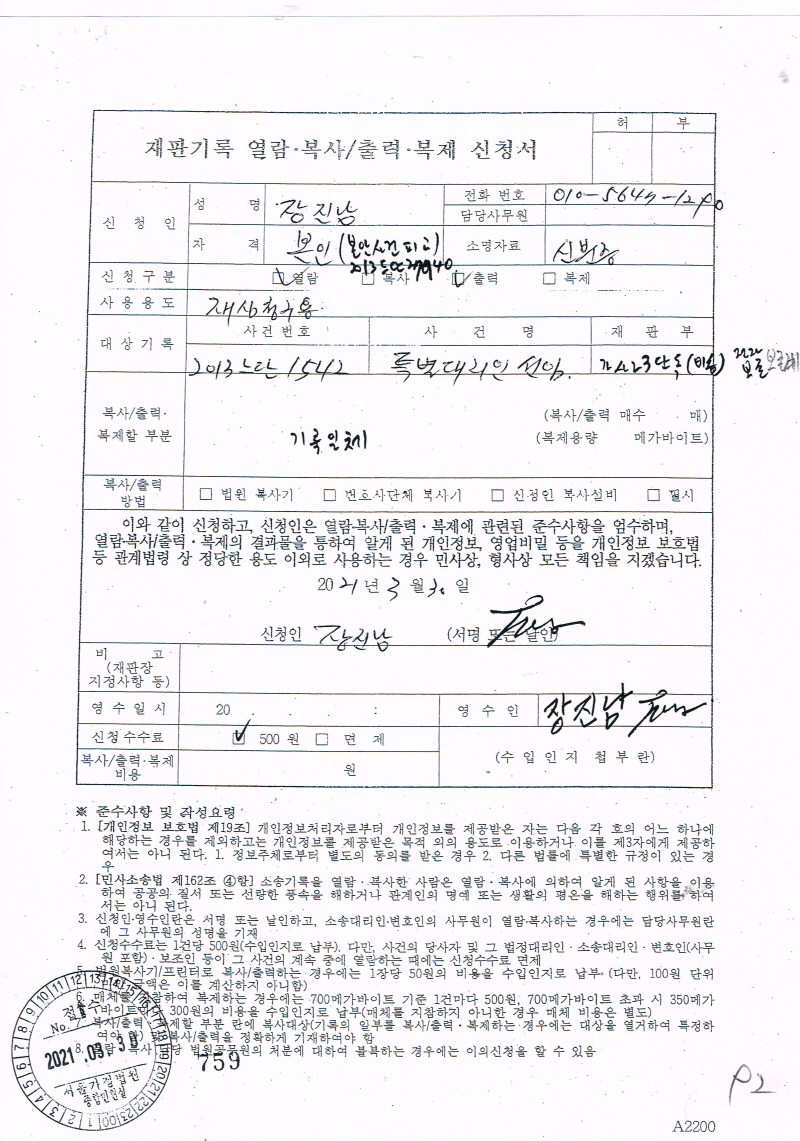 허 부
재판기록 열람·복사/출력·복제 신청서
신 청 인
성 명 장진남
전화 번호
담당사무원
자 격 본인 (본안사건피고)
소명자료 신분증
신청구분 □ 열람 □ 복사 □ 출력 □ 복제
사용용도
대상기록
사건번호 사 건 명 재 판 부
2013느단1542 특별대리인 선임.
복사/출력·
복제할 부분
기록일체
(복사/출력 매수 매)
(복제용량 메가바이트)
복사/출력
방법
□ 법원 복사기 □ 변호사단체 복사기 □ 신청인 복사설비 □ 필사
이와 같이 신청하고, 신청인은 열람·복사/출력·복제에 관련된 준수사항을 엄수하며,
열람·복사/출력·복제의 결과물을 통하여 알게 된 개인정보, 영업비밀 등을 개인정보 보호법
등 관계법령 상 정당한 용도 이외로 사용하는 경우 민사상, 형사상 모든 책임을 지겠습니다.
2021년 3월 30일
신청인 장진남 (서명 또는 날인)
비 고
(재판장
지정사항 등)
영수일시 20 . . . :
영 수 인 장진남
신청수수료 □ 500 원 □ 면 제
(수 입 인 지 첩 부 란)
복사/출력·복제
비용
원
※ 준수사항 및 작성요령
1. [개인정보 보호법 제19조] 개인정보처리자로부터 개인정보를 제공받은 자는 다음 각 호의 어느 하나에
해당하는 경우를 제외하고는 개인정보를 제공받은 목적 외의 용도로 이용하거나 이를 제3자에게 제공하
여서는 아니 된다. 1. 정보주체로부터 별도의 동의를 받은 경우 2. 다른 법률에 특별한 규정이 있는 경
우
2. [민사소송법 제162조 ④항] 소송기록을 열람·복사한 사람은 열람·복사에 의하여 알게 된 사항을 이용
하여 공공의 질서 또는 선량한 풍속을 해하거나 관계인의 명예 또는 생활의 평온을 해하는 행위를 하여
서는 아니 된다.
3. 신청인·영수인란은 서명 또는 날인하고, 소송대리인·변호인의 사무원이 열람·복사하는 경우에는 담당사무원란
에 그 사무원의 성명을 기재
4. 신청수수료는 1건당 500원(수입인지로 납부). 다만, 사건의 당사자 및 그 법정대리인·소송대리인·변호인(사무
원 포함)·보조인 등이 그 사건의 계속 중에 열람하는 때에는 신청수수료 면제
5. 법원복사기/프린터로 복사/출력하는 경우에는 1장당 50원의 비용을 수입인지로 납부 (다만, 100원 단위
미만 금액은 이를 계산하지 아니함)
6. 매체를 지참하여 복제하는 경우에는 700메가바이트 기준 1건마다 500원, 700메가바이트 초과 시 350메가
바이트마다 300원의 비용을 수입인지로 납부(매체를 지참하지 아니한 경우 매체 비용은 별도)
7. 복사/출력·복제할 부분 란에 복사대상(기록의 일부를 복사/출력·복제하는 경우에는 대상을 열거하여 특정하
여야 함) 및 복사/출력을 정확하게 기재하여야 함
8. 열람·복사 담당 법원공무원의 처분에 대하여 불복하는 경우에는 이의신청을 할 수 있음
접수
No.
2021. 03. 30
서울가정법원
종합민원실
759
P2
A2200